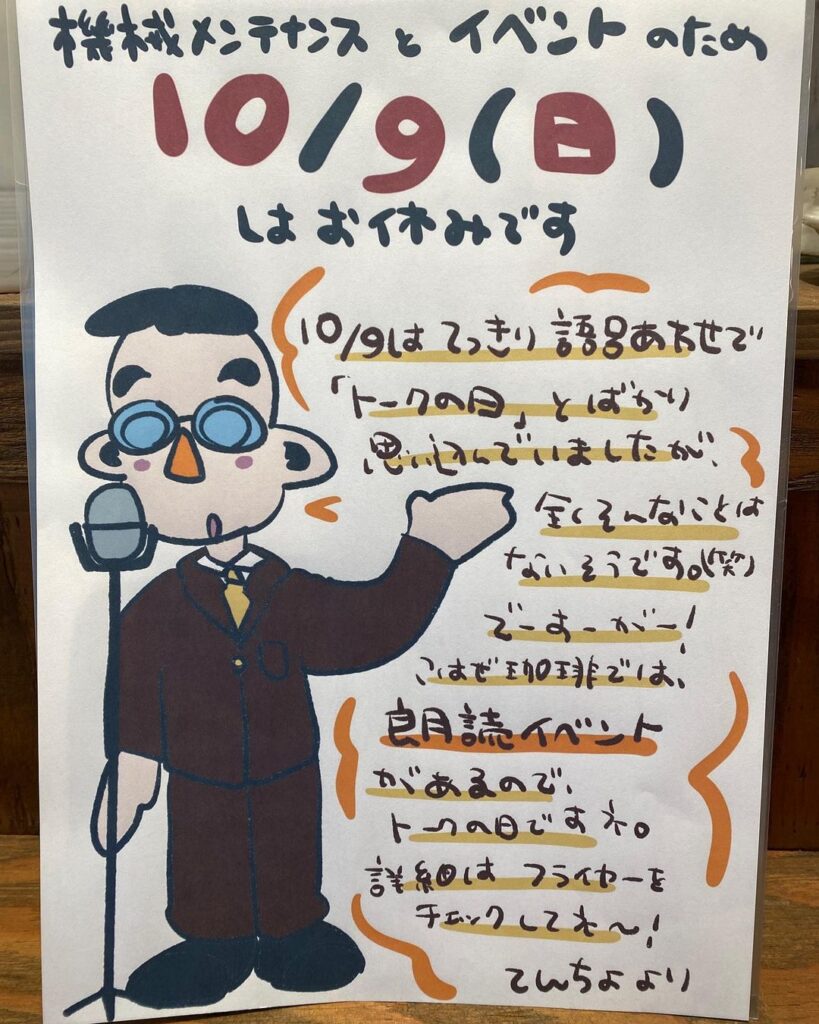 機械メンテナンスとイベントのため
10/9(日)
はお休みです
10/9はてっきり語呂あわせで
「トークの日」とばかり
思い込んでいましたが、
全くそんなことは
ないそうです。(笑)
でーすーがー!
こはぜ珈琲では、
朗読イベント
があるので、
トークの日ですネ。
詳細はフライヤーを
チェックしてネ〜!
てんちょより